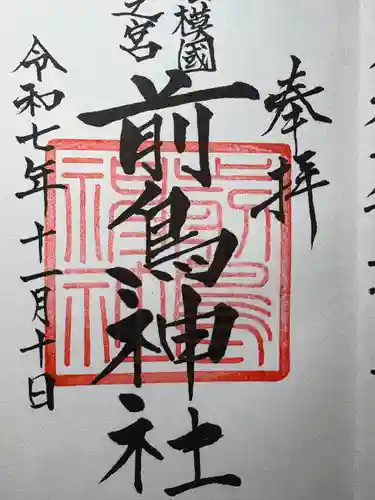 奉拝
模國
之宮
前鳥神社
令和七年十一月十日